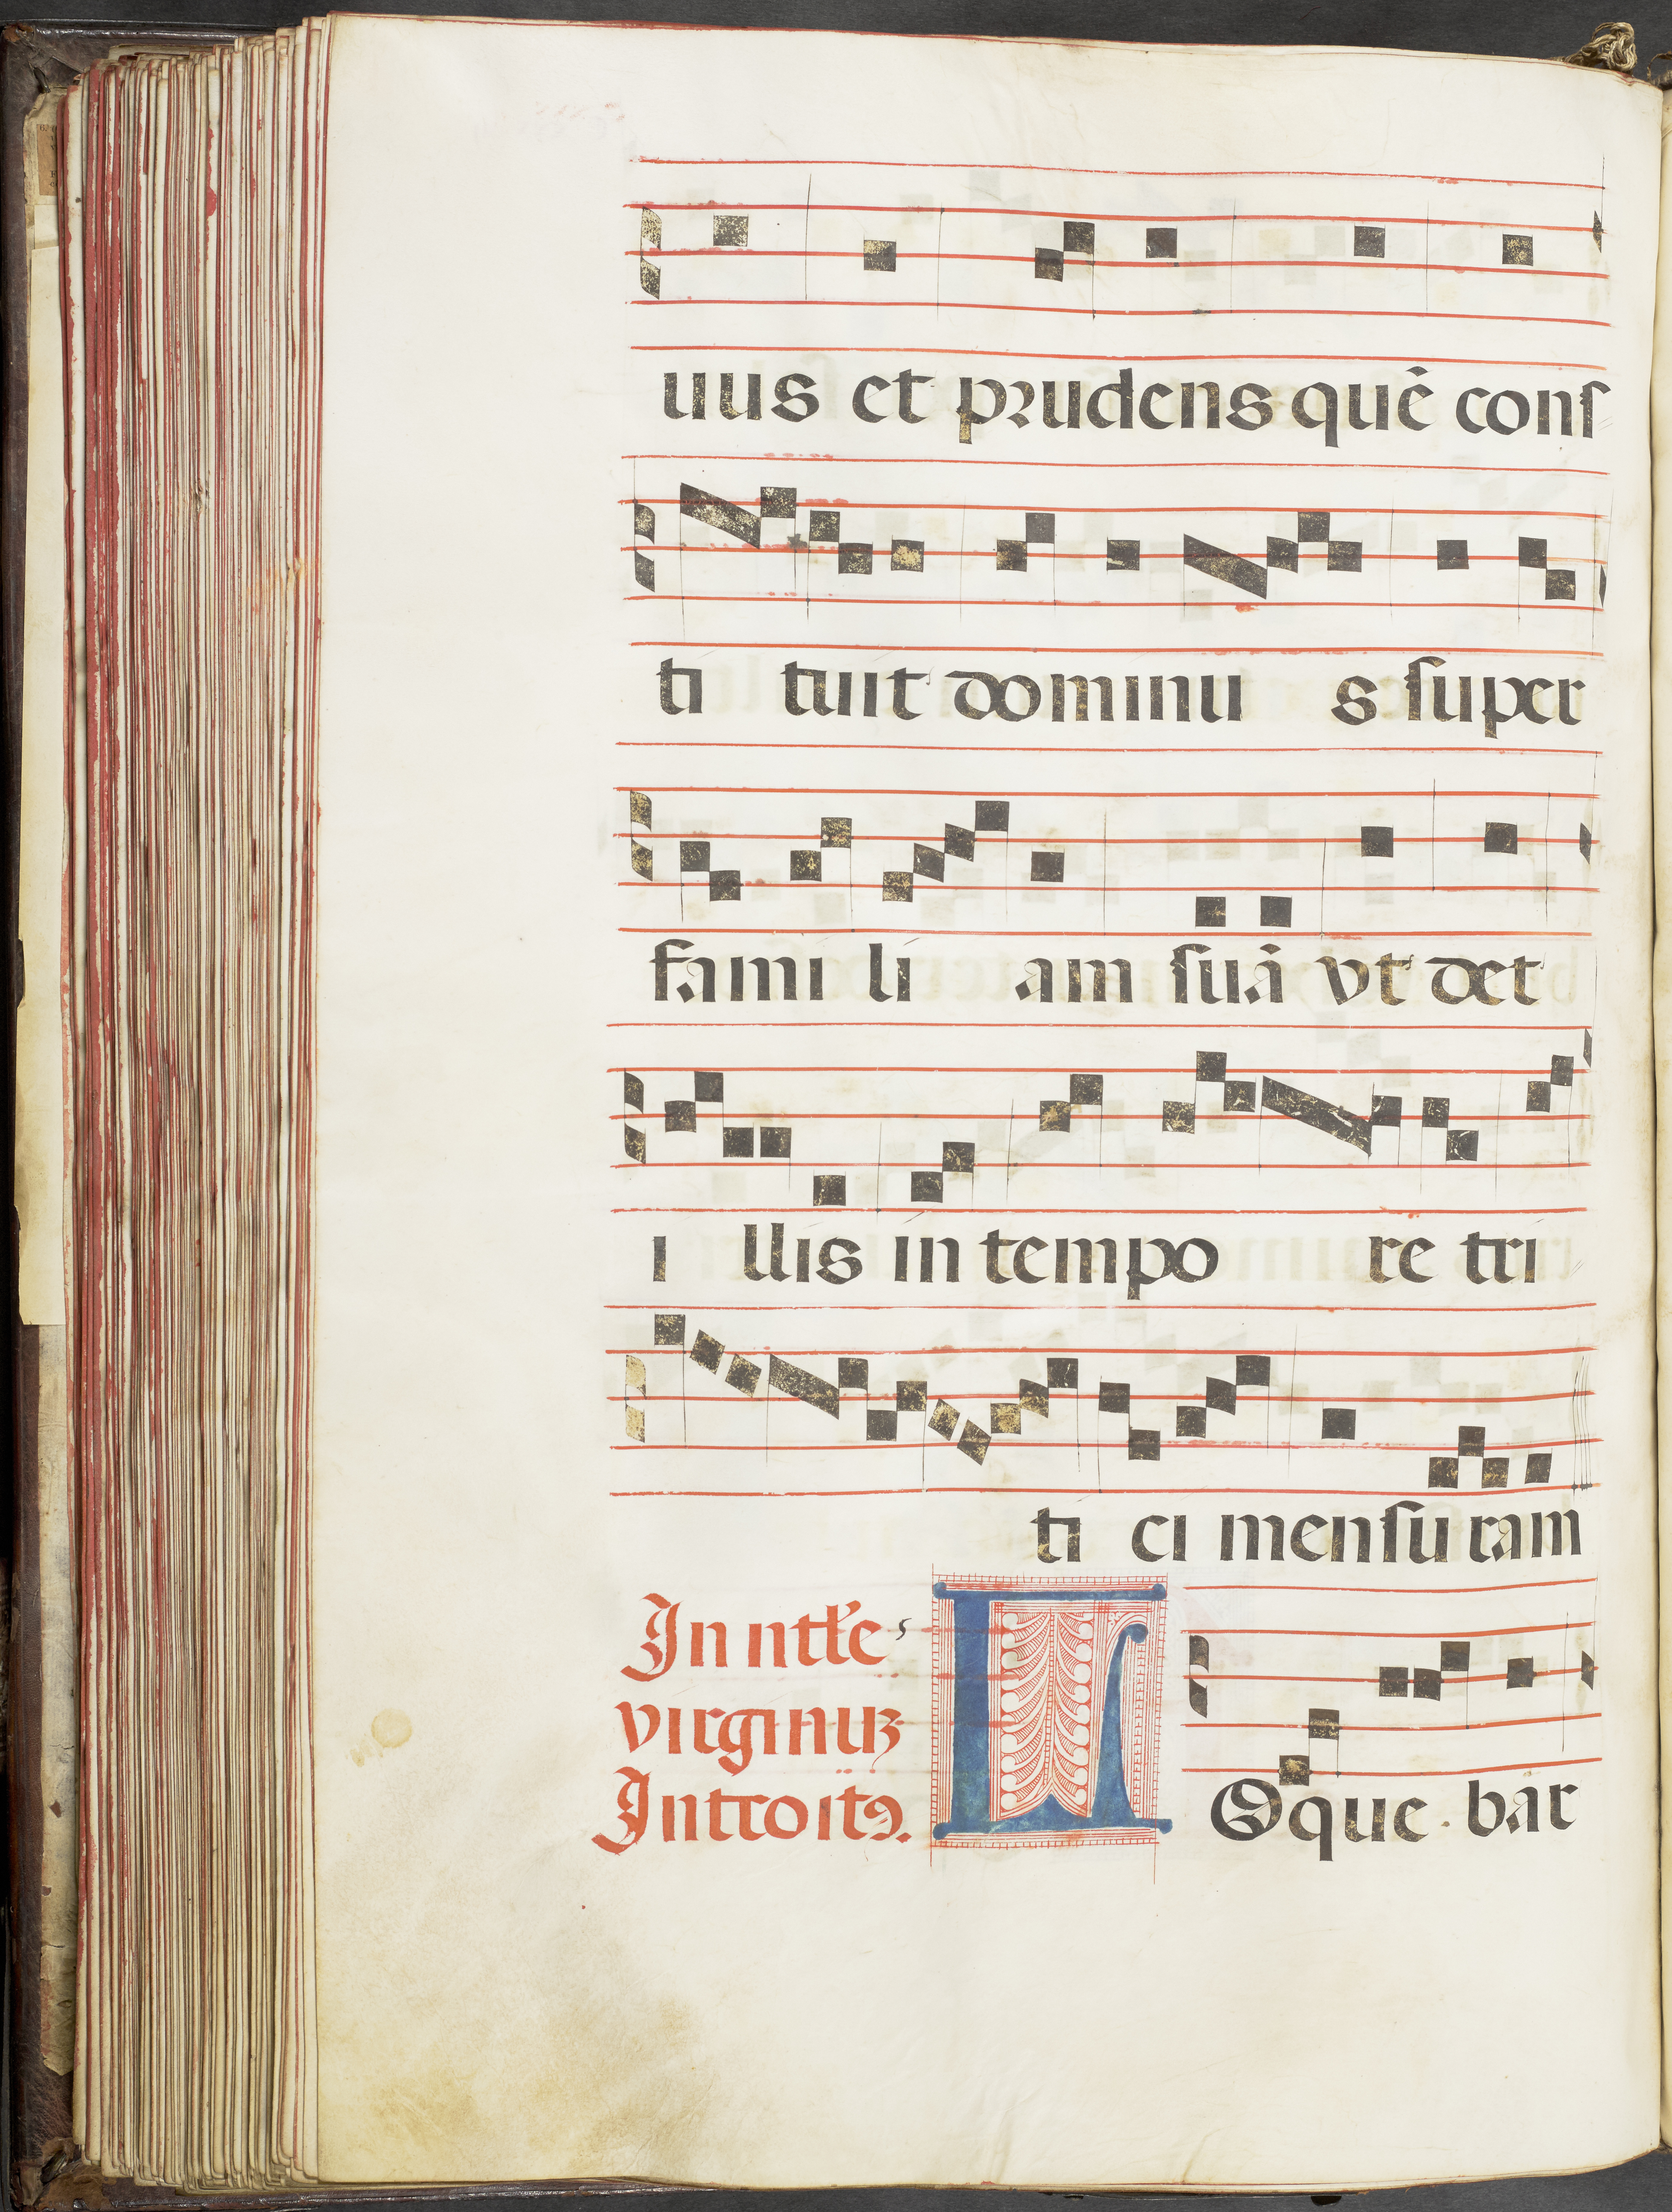 uus et prudens quē conſ
ti tuit dominu s ſuper
fami li am ſuā vt det
i llis in tempo re tri
ti ci menſu ram
In ntłe
virginuꝫ
Introitꝯ.
LOque bar